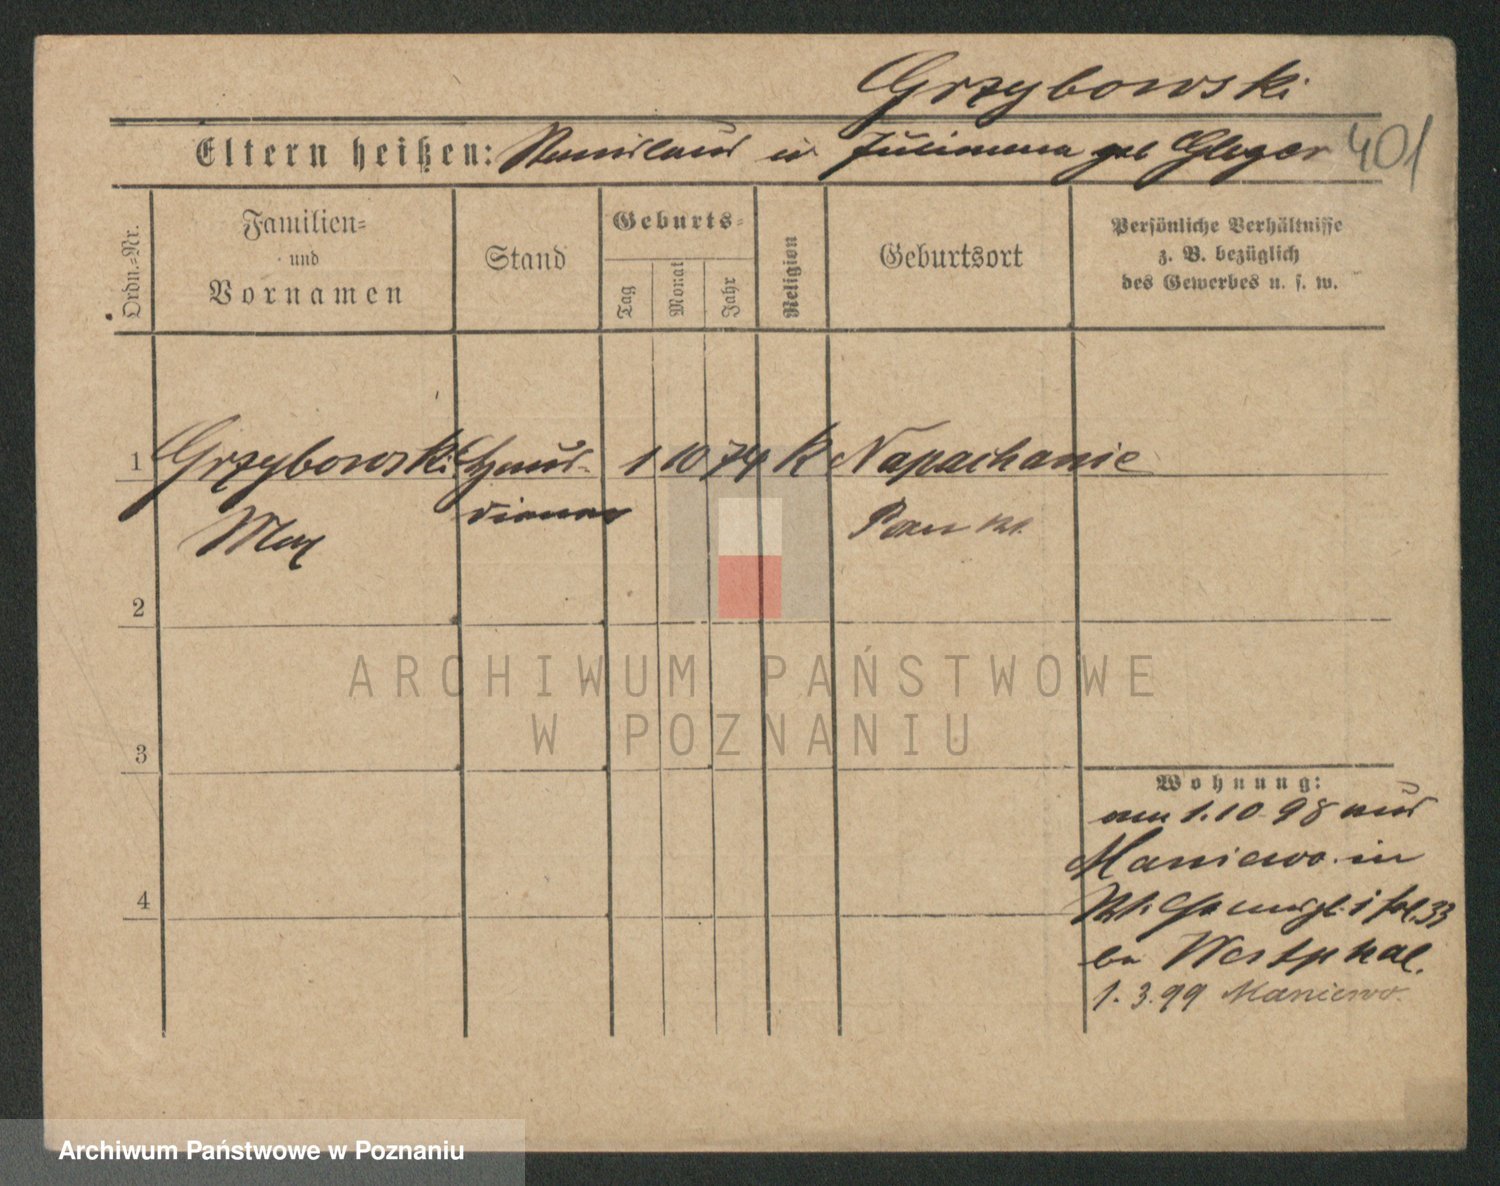 Grzybowski
Eltern heißen: Stanislaus u Julianna geb Gleger
401
Ordn.-Nr.
Familien-
und
Vornamen
Stand
Geburts-
Tag
Monat
Jahr
Religion
Geburtsort
Persönliche Verhältnisse
z. B. bezüglich
des Gewerbes u. s. w.
1 Grzybowski Haus- 1 10 74 K Napachanie
Max diener Posen
2
3
4
Wohnung:
am 1.10 98 aus
Maniewo in
33
Westphal.
1.3.99 Maniewo.
ARCHIWUM PAŃSTWOWE
W POZNANIU
Archiwum Państwowe w Poznaniu